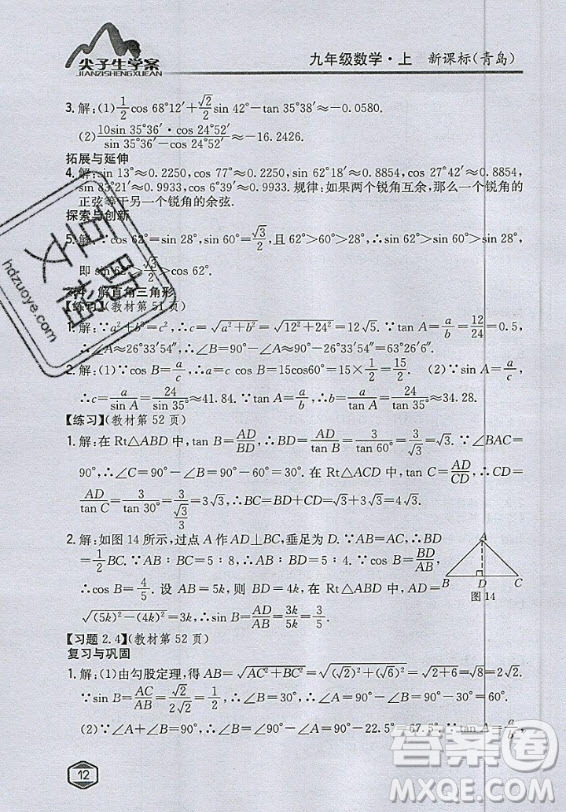 尖子生学案
JIANZISHENGXUEAN
九年级数学·上 新课标(青岛)
3.解:(1)1/2 cos 68°12′+√2/5 sin 42°-tan 18°30′≈-0.0580.
(2)(10sin 35°36′·cos 24°52′)/(sin 35°36′-cos 24°52′)≈-16.2426.
拓展与延伸
4.解:sin 13°≈0.2250,cos 77°≈0.2250,sin 62°18′≈0.8854,cos 27°42′≈0.8854,
sin 83°21′≈0.9933,cos 6°39′≈0.9933.规律:如果两个锐角互余,那么一个锐角的
正弦等于另一个锐角的余弦.
探索与创新
5.解:∵cos 62°=sin 28°,sin 60°=√3/2,且62°>60°>28°,∴sin 62°>sin 60°>
sin 28°,即sin 62°>√3/2>cos 62°.
解直角三角形
【练习】(教材第51页)
1.解:∵a²+b²=c²,∴c=√(a²+b²)=√(12²+24²)=12√5.∵tan A=a/b=12/24=0.5,
∴∠A≈26°33′54″,∴∠B=90°-∠A≈90°-26°33′54″=63°26′6″.
2.解:(1)∵cos B=a/c,∴a=c·cos B=15cos60°=15×1/2=15/2. (2)∵sin A=a/c,
∴c=a/sin A=24/sin 35°≈41.84.∵tan A=a/b,∴b=a/tan A=24/tan 35°≈34.28.
【练习】(教材第52页)
1.解:在Rt△ABD中,tan B=AD/BD,∴BD=AD/tan B=3/tan 60°=√3.∵∠BAC=
90°,∴∠C=90°-∠B=90°-60°=30°.在Rt△ACD中,tan C=AD/CD,∴CD=
AD/tan C=3/tan 30°=3√3,∴BC=BD+CD=√3+3√3=4√3.
2.解:如图14所示,过点A作AD⊥BC,垂足为D.∵AB=AC,∴BD=
1/2BC.∵AB∶BC=5∶8,∴AB∶BD=5∶4.∴cos B=BD/AB=
4/5,∴cos C=4/5.设AB=5k,则BD=4k,∴AD=
√((5k)²-(4k)²)=3k,∴sin B=AD/AB=3k/5k=3/5.
A
B
D
C
图14
【习题2.4】(教材第52页)
复习与巩固
1.解:(1)由勾股定理,得AB=√(AC²+BC²)=√((√2)²+(√6)²)=
∵sin B=AC/AB=√2/2√2=1/2,∴∠B=30°,∴∠A=90°-∠B=90°-
(2)∵∠A+∠B=90°,∴∠B=90°-∠A=90°-22.5°=67.5°.∵tan A=a/b,
12
互助文档
hdzuoye.com
答案圈
MXQE.COM